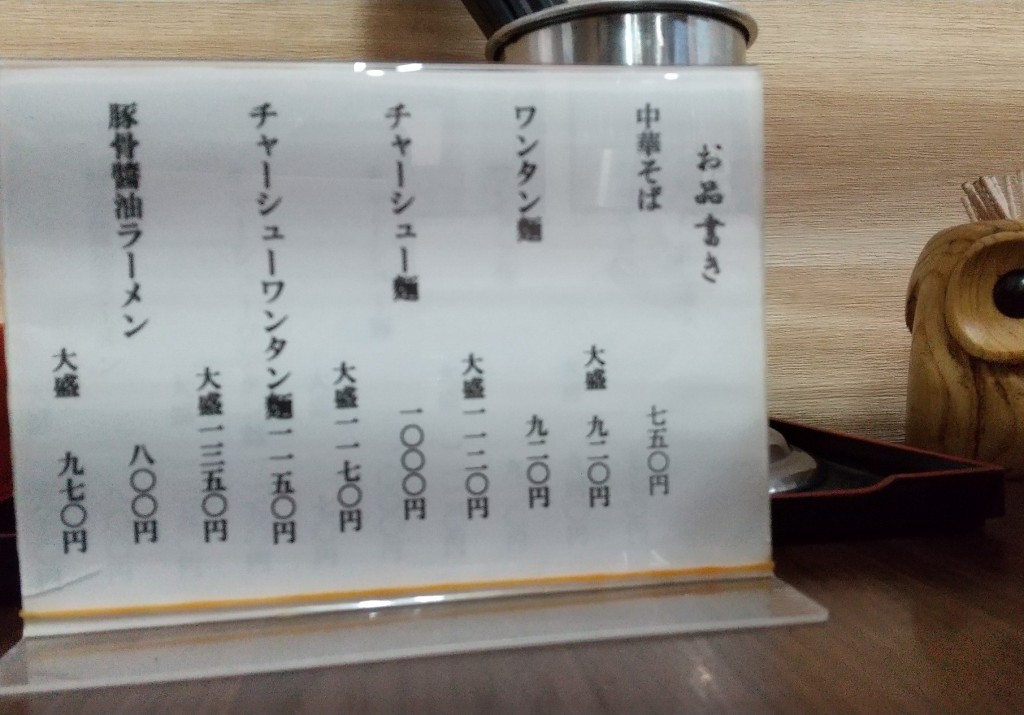 お品書き
中華そば 七五〇円
大盛 九二〇円
ワンタン麺 九二〇円
大盛 一一二〇円
チャーシュー麺 一〇〇〇円
大盛 一一七〇円
チャーシューワンタン麺 一一五〇円
大盛 一三五〇円
豚骨醬油ラーメン 八〇〇円
大盛 九七〇円